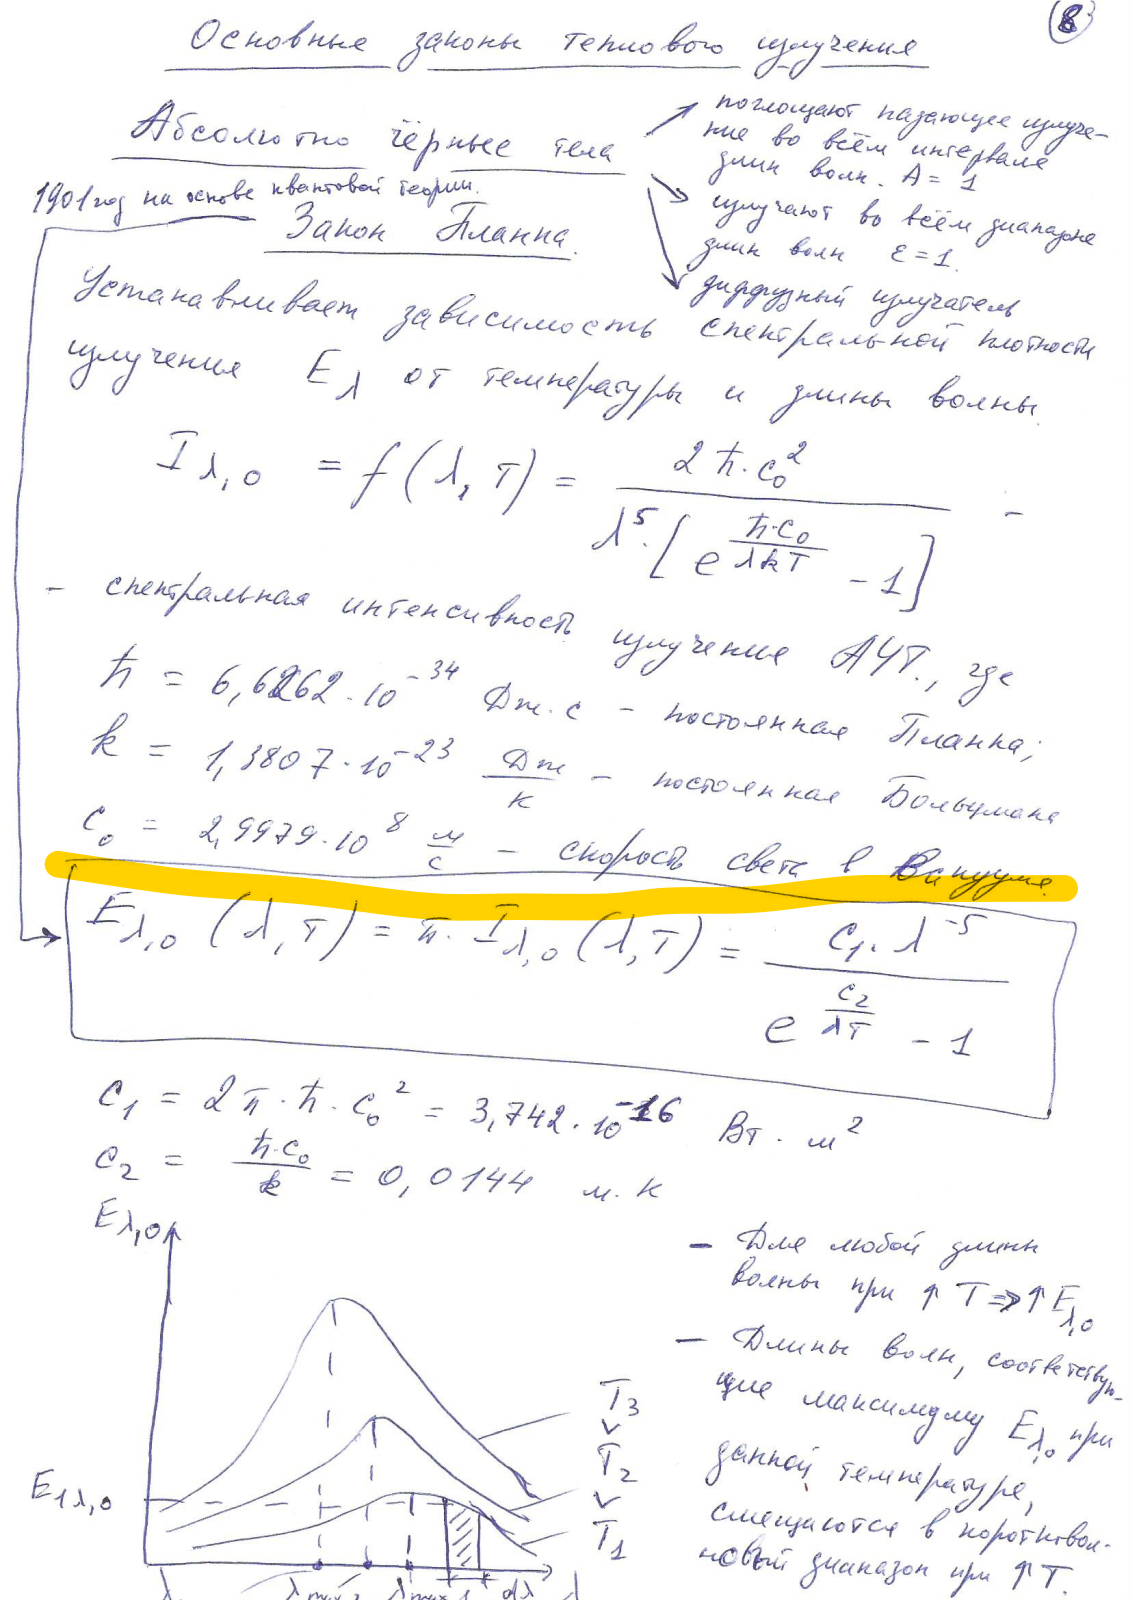 8
Основные законы теплового излучения
Абсолютно чёрные тела
поглощают падающее излуче-
ние во всём интервале
длин волн. A = 1
излучают во всём диапазоне
длин волн ε = 1.
диффузный излучатель
1901 год на основе квантовой теории.
Закон Планка.
Устанавливает зависимость спектральной плотности
излучения Eλ от температуры и длины волны.
I λ,0 = f(λ, T) = 2ħ·c₀² / λ⁵·[e^(ħ·c₀/λkT) - 1] -
- спектральная интенсивность излучения АЧТ., где
ħ = 6,6262·10⁻³⁴ Дж·с - постоянная Планка;
k = 1,3807·10⁻²³ Дж/К - постоянная Больцмана
c₀ = 2,9979·10⁸ м/с - скорость света в вакууме.
E λ,0 (λ,T) = π·I λ,0 (λ,T) = c₁·λ⁻⁵ / e^(c₂/λT) - 1
c₁ = 2π·ħ·c₀² = 3,742·10⁻¹⁶ Вт·м²
c₂ = ħ·c₀/k = 0,0144 м·К
E λ,0
- Для любой длины
волны при ↑ T ⇒ ↑ E λ,0
- Длины волн, соответствую-
щие максимуму E λ,0 при
данной температуре,
смещаются в коротковол-
новый диапазон при ↑ T.
T₃
∨
T₂
∨
T₁
E₁ λ,0
dλ
λ